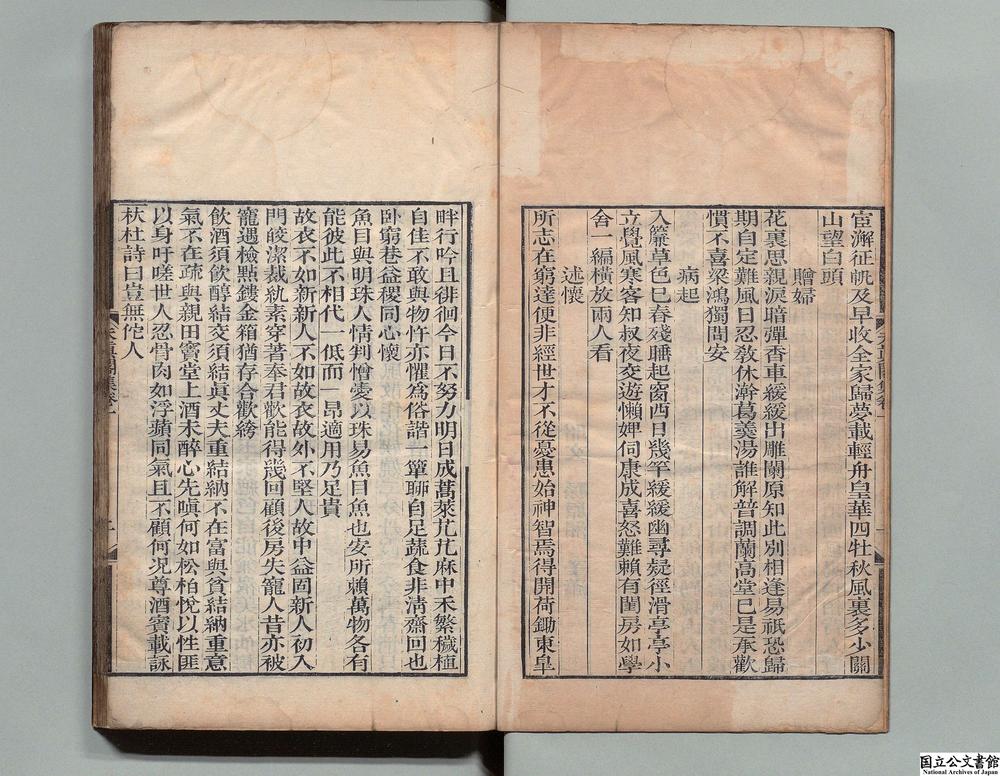 宦澥征帆及早收全家歸夢載輕舟皇華四牡秋風裏多少關
山望白頭
贈婦
花裏思親淚暗彈香車緩緩出雕闌原知此別相逢易祇恐歸
期自定難風日忍敎休澣葛羹湯誰解普調蘭高堂已是承歡
慣不喜梁鴻獨問安
病起
入簾草色已春殘睡起窗西日幾竿緩緩幽尋疑徑滑亭亭小
立覺風寒客知叔夜交遊懶婢伺康成喜怒難賴有閨房如學
舍一編橫放兩人看
述懷
所志在窮達便非經世才不從憂患始神智焉得開荷鋤東皐
畔行吟且徘徊今日不努力明日成蒿萊尢尢麻中禾繁穢植
自佳不敢與物忤亦懼爲俗諧一簞聊自足蔬食非淸齋回也
臥窮巷益稷同心懷
魚目與明珠人情判憎愛以珠易魚目魚也安所賴萬物各有
能彼此不相代一低而一昂適用乃足貴
故衣不如新新人不如故衣故外不堅人故中益固新人初入
門皎潔裁紈素穿著奉君歡能得幾回顧後房失寵人昔亦被
寵遇檢點鏤金箱猶存合歡綺
飮酒須飮醇結交須結眞丈夫重結納不在富與貧結納重意
氣不在疏與親田竇堂上酒未醉心先嗔何如松柏悅以性匪
以身吁嗟世人忍骨肉如浮蘋同氣且不顧何况尊酒賓載詠
杕杜詩曰豈無佗人
国立公文書館
National Archives of Japan